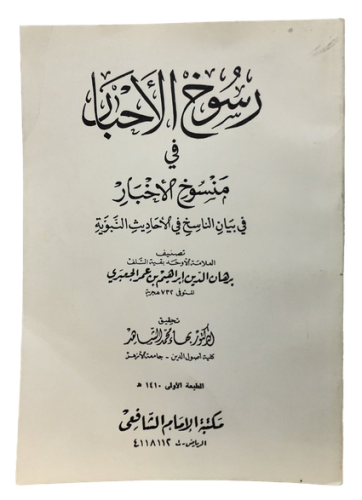 رسوخ الأحبار
في
منسوخ الأخبار
في بيان الناسخ في الأحاديث النبوية
تصنيف
العلامة الأوحد بقية السلف
برهان الدين إبراهيم بن عمر الجعبري
المتوفى ٧٣٢ هجرية
تحقيق
الدكتور بهاء محمد الشاهد
كلية أصول الدين - جامعة الأزهر
الطبعة الأولى ١٤١٠ هـ
مكتبة الإمام الشافعي
الرياض - ت ٤١١٨١١٢